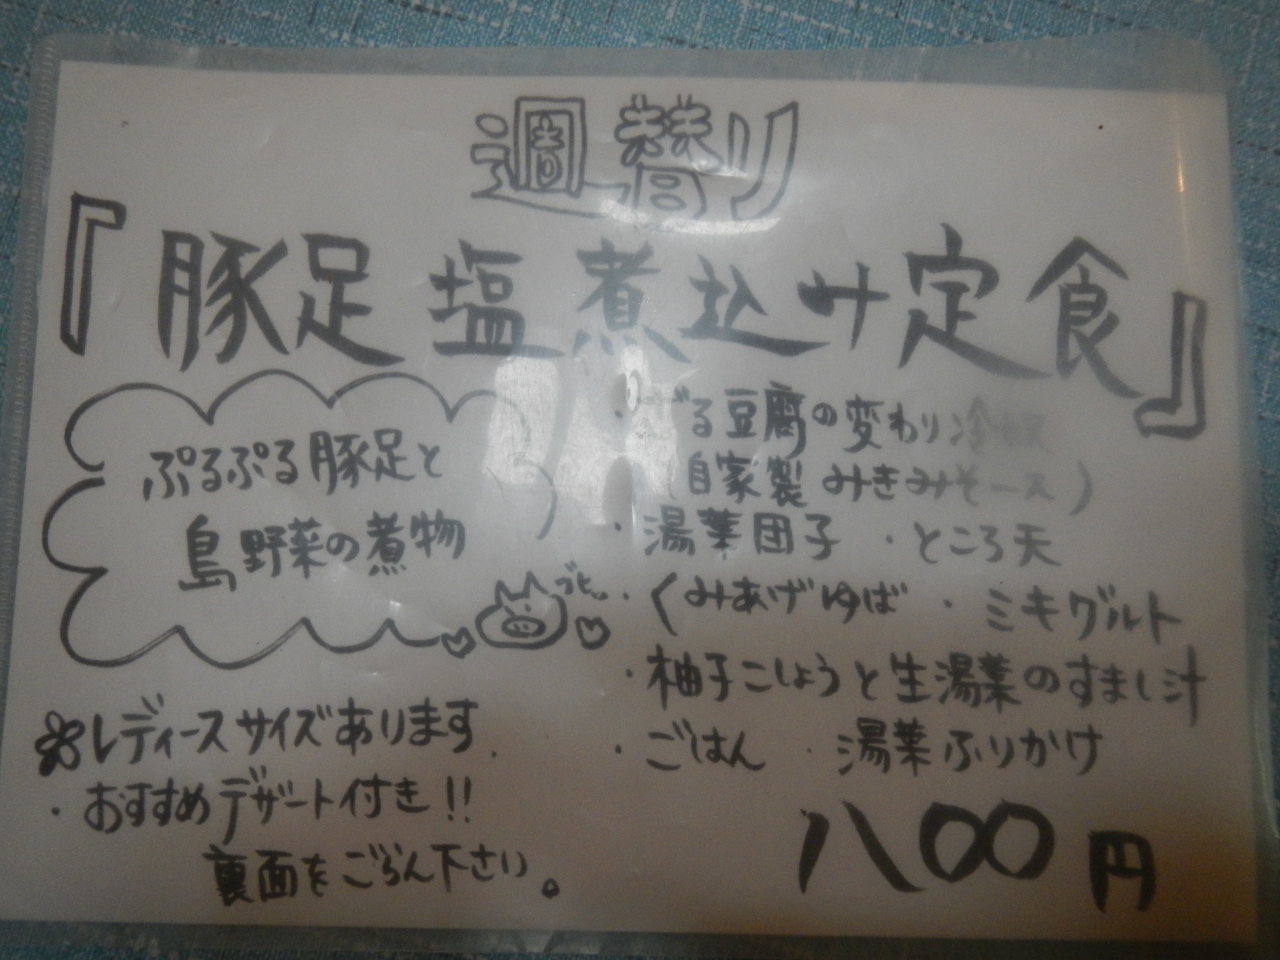 週替り
『豚足塩煮込み定食』
ぷるぷる豚足と
島野菜の煮物
ざる豆腐の変わり冷奴
(自家製みきみそソース)
・湯葉団子 ・ところ天
・くみあげゆば ・ミキグルト
・柚子こしょうと生湯葉のすまし汁
・ごはん ・湯葉ふりかけ
レディースサイズあります.
・おすすめデザート付き!!
裏面をごらん下さい。
八〇〇円